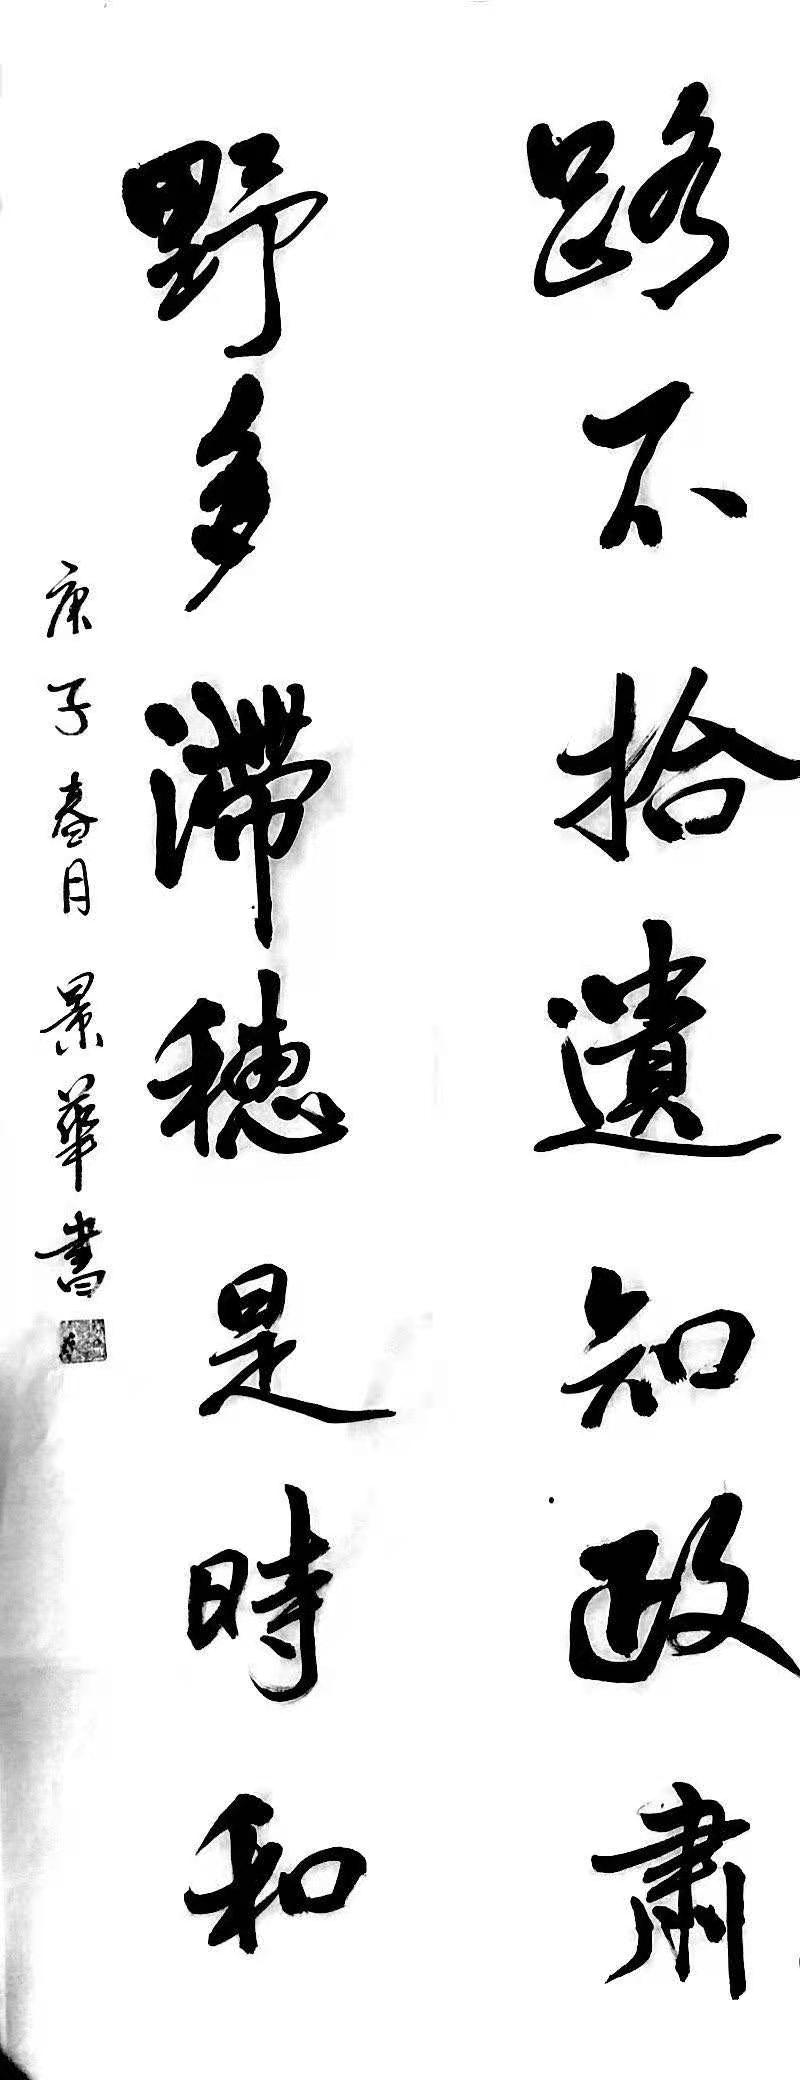 路不拾遺知政肅
野多滯穗是時和
庚子春月 景華書